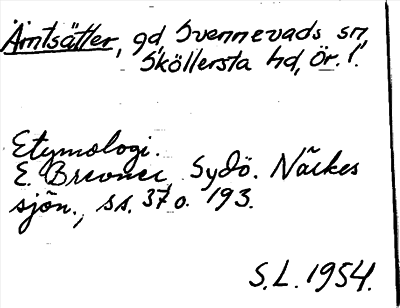 Ämtsätter, gd, Svennevads sn,
Sköllersta hd, Ör. l.
Etymologi.
E. Brevner Sydö. Närkes
sjön., ss. 37 o. 193.
S.L. 1954.